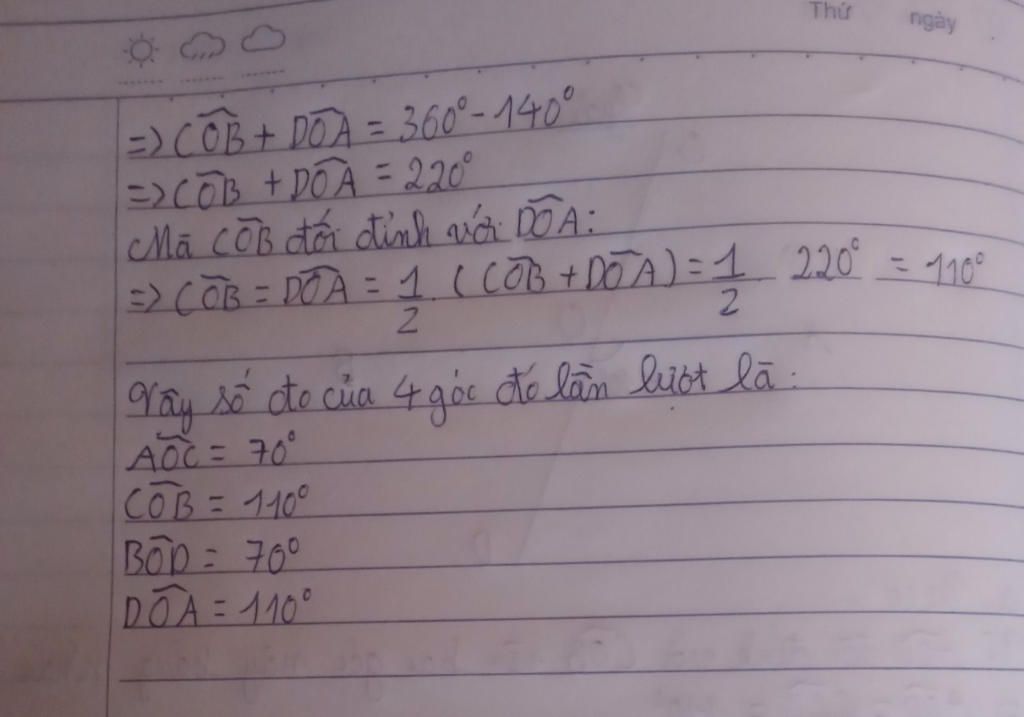 Thứ ngày
=> CÔB + DÔA = 360° - 140°
=> CÔB + DÔA = 220°
Mà CÔB đối đỉnh với DÔA:
=> CÔB = DÔA = 1/2 . (CÔB + DÔA) = 1/2 220° = 110°
Vậy số đo của 4 góc đó lần lượt là:
AÔC = 70°
CÔB = 110°
BÔD = 70°
DÔA = 110°